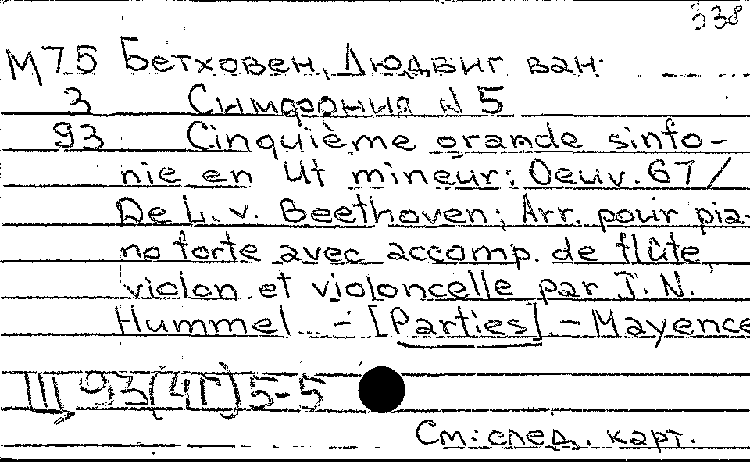 338
М75 Бетховен, Людвиг ван.
3 Симфония N 5
93 Cinquième grande sinfo-
nie en Ut mineur: Oeuv. 67 /
De L. v. Beethoven; Arr. pour pia-
no forte avec accomp. de flûte,
violon et violoncelle par J. N.
Hummel. - [Parties]. - Mayence
III 93(4Г)5-5
См: след. карт.